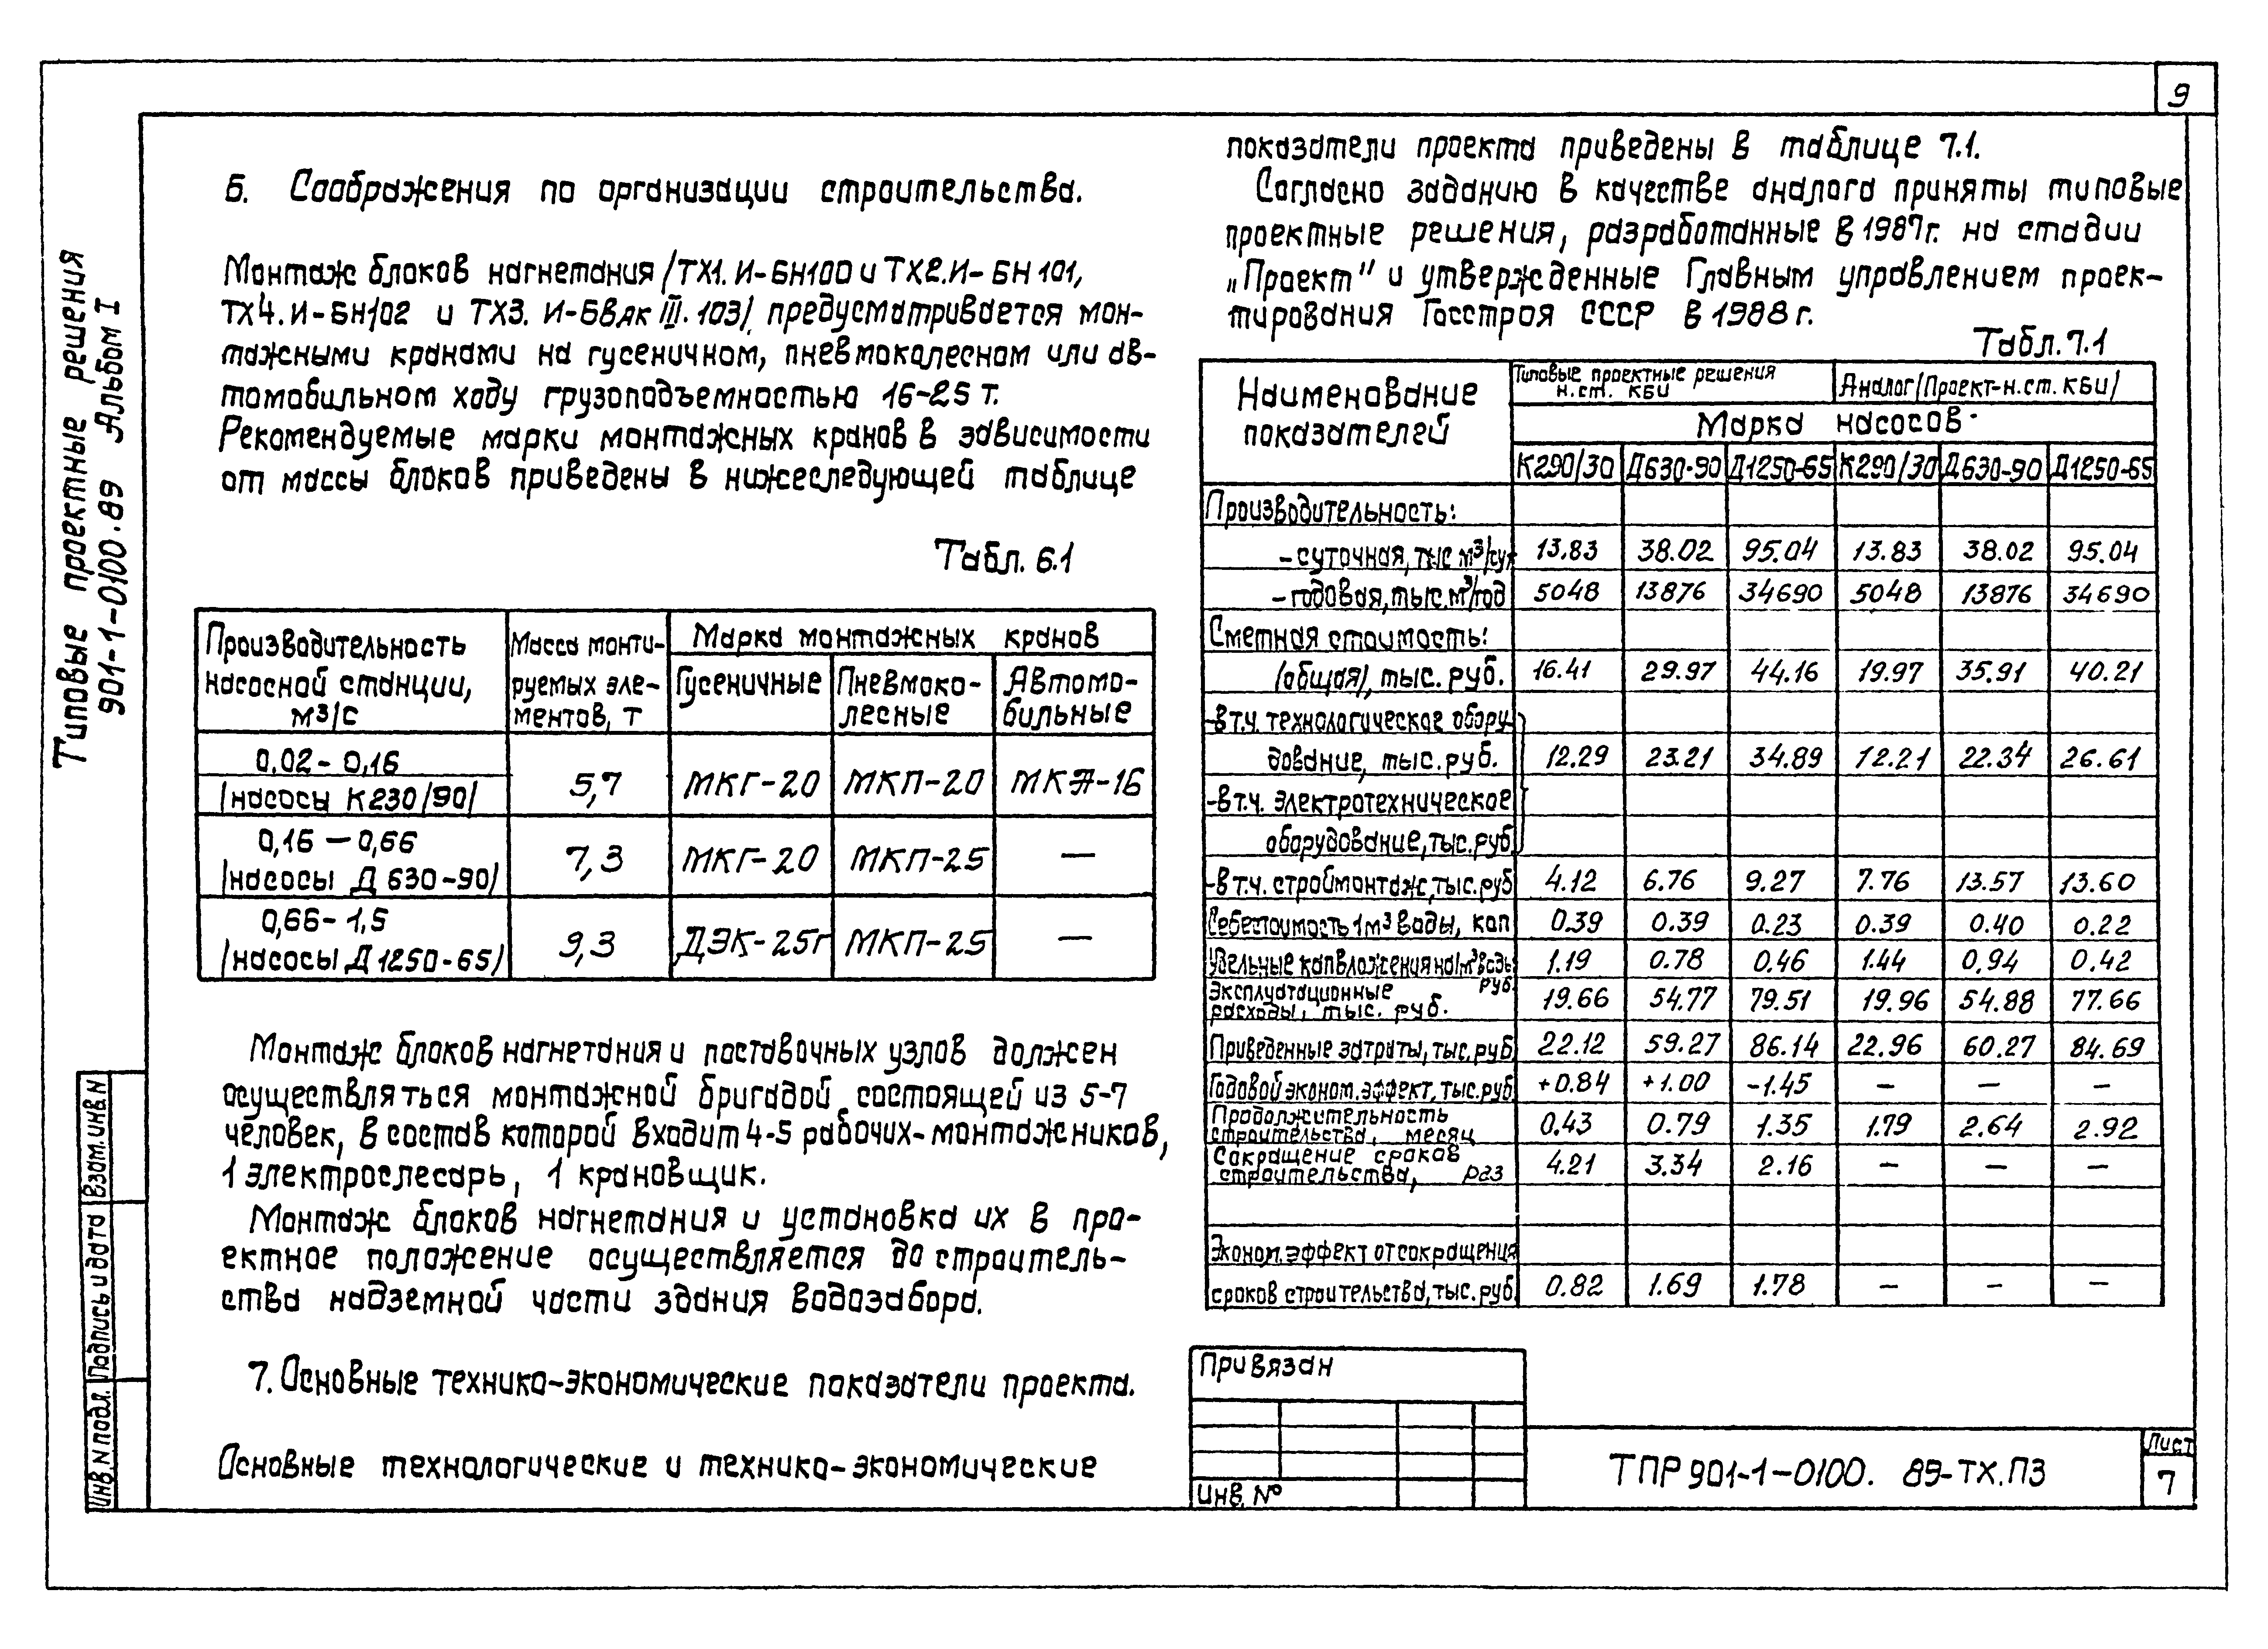 9
Типовые проектные решения
901-1-0100.89 Альбом I
6. Соображения по организации строительства.
Монтаж блоков нагнетания /ТХ1.И-БН100 и ТХ2.И-БН101,
ТХ4.И-БН102 и ТХ3.И-Бвак III.103/ предусматривается мон-
тажными кранами на гусеничном, пневмоколесном или ав-
томобильном ходу грузоподъемностью 16-25 т.
Рекомендуемые марки монтажных кранов в зависимости
от массы блоков приведены в нижеследующей таблице
Табл. 6.1
Производительность насосной станции, м³/с | Масса монти-руемых эле-ментов, т | Марка монтажных кранов
Гусеничные | Пневмоко-лесные | Автомо-бильные
0,02-0,16 /насосы К230/90/ | 5,7 | МКГ-20 | МКП-20 | МКА-16
0,16-0,66 /насосы Д 630-90/ | 7,3 | МКГ-20 | МКП-25 | —
0,66-1,5 /насосы Д 1250-65/ | 9,3 | ДЭК-25г | МКП-25 | —
Монтаж блоков нагнетания и поставочных узлов должен
осуществляться монтажной бригадой состоящей из 5-7
человек, в состав которой входит 4-5 рабочих-монтажников,
1 электрослесарь, 1 крановщик.
Монтаж блоков нагнетания и установка их в про-
ектное положение осуществляется до строитель-
ства надземной части здания водозабора.
7. Основные технико-экономические показатели проекта.
Основные технологические и технико-экономические
показатели проекта приведены в таблице 7.1.
Согласно заданию в качестве аналога приняты типовые
проектные решения, разработанные в 1987г. на стадии
„Проект" и утвержденные Главным управлением проек-
тирования Госстроя СССР в 1988г.
Табл. 7.1
Наименование показателей | Типовые проектные решения н.ст. КБИ | Аналог/Проект-н.ст. КБИ/
Марка насосов
К290/30 | Д630-90 | Д1250-65 | К290/30 | Д630-90 | Д1250-65
Производительность:
- суточная, тыс м³/сут | 13.83 | 38.02 | 95.04 | 13.83 | 38.02 | 95.04
- годовая, тыс. м³/год | 5048 | 13876 | 34690 | 5048 | 13876 | 34690
Сметная стоимость:
(общая), тыс. руб. | 16.41 | 29.97 | 44.16 | 19.97 | 35.91 | 40.21
- в т.ч. технологическое обору-
дование, тыс. руб. | 12.29 | 23.21 | 34.89 | 12.21 | 22.34 | 26.61
- в т.ч. электротехническое
оборудование, тыс. руб
- в т.ч. строймонтаж, тыс. руб | 4.12 | 6.76 | 9.27 | 7.76 | 13.57 | 13.60
Себестоимость 1м³ воды, коп | 0.39 | 0.39 | 0.23 | 0.39 | 0.40 | 0.22
Удельные капвложения на 1м³ воды руб. | 1.19 | 0.78 | 0.46 | 1.44 | 0.94 | 0.42
Эксплуатационные расходы, тыс. руб. | 19.66 | 54.77 | 79.51 | 19.96 | 54.88 | 77.66
Приведенные затраты, тыс. руб | 22.12 | 59.27 | 86.14 | 22.96 | 60.27 | 84.69
Годовой эконом. эффект, тыс. руб. | +0.84 | +1.00 | -1.45 | — | — | —
Продолжительность строительства, месяц | 0.43 | 0.79 | 1.35 | 1.79 | 2.64 | 2.92
Сокращение сроков строительства, раз | 4.21 | 3.34 | 2.16 | — | — | —
Эконом. эффект от сокращения
сроков строительства, тыс. руб. | 0.82 | 1.69 | 1.78 | — | — | —
Привязан
Инв. №
ТПР 901-1-0100.89-ТХ.ПЗ
Лист
7
Взам. инв. N
Подпись и дата
Инв. N подл.